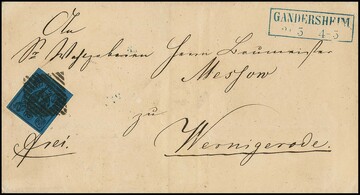 GANDERSHEIM
4-5
An
Sr Wohlgeboren Herrn Baumeister
Messow
zu
Wernigerode.
frei.